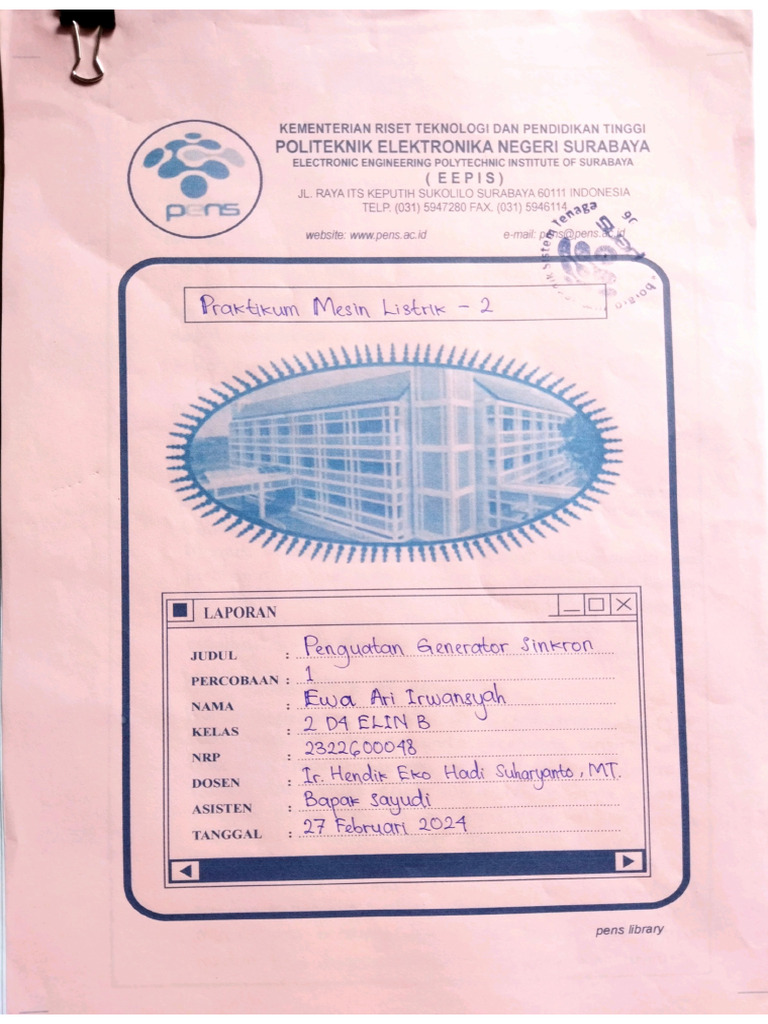 pens
KEMENTERIAN RISET TEKNOLOGI DAN PENDIDIKAN TINGGI
POLITEKNIK ELEKTRONIKA NEGERI SURABAYA
ELECTRONIC ENGINEERING POLYTECHNIC INSTITUTE OF SURABAYA
( E E P I S )
JL. RAYA ITS KEPUTIH SUKOLILO SURABAYA 60111 INDONESIA
TELP. (031) 5947280 FAX. (031) 5946114
website: www.pens.ac.id e-mail: pens@pens.ac.id
Sistem Tenaga
Praktikum Mesin Listrik - 2
LAPORAN
JUDUL : Penguatan Generator Sinkron
PERCOBAAN : 1
NAMA : Ewa Ari Irwansyah
KELAS : 2 D4 ELIN B
NRP : 2322600048
DOSEN : Ir. Hendik Eko Hadi Suharyanto, MT.
ASISTEN : Bapak Sayudi
TANGGAL : 27 Februari 2024
pens library